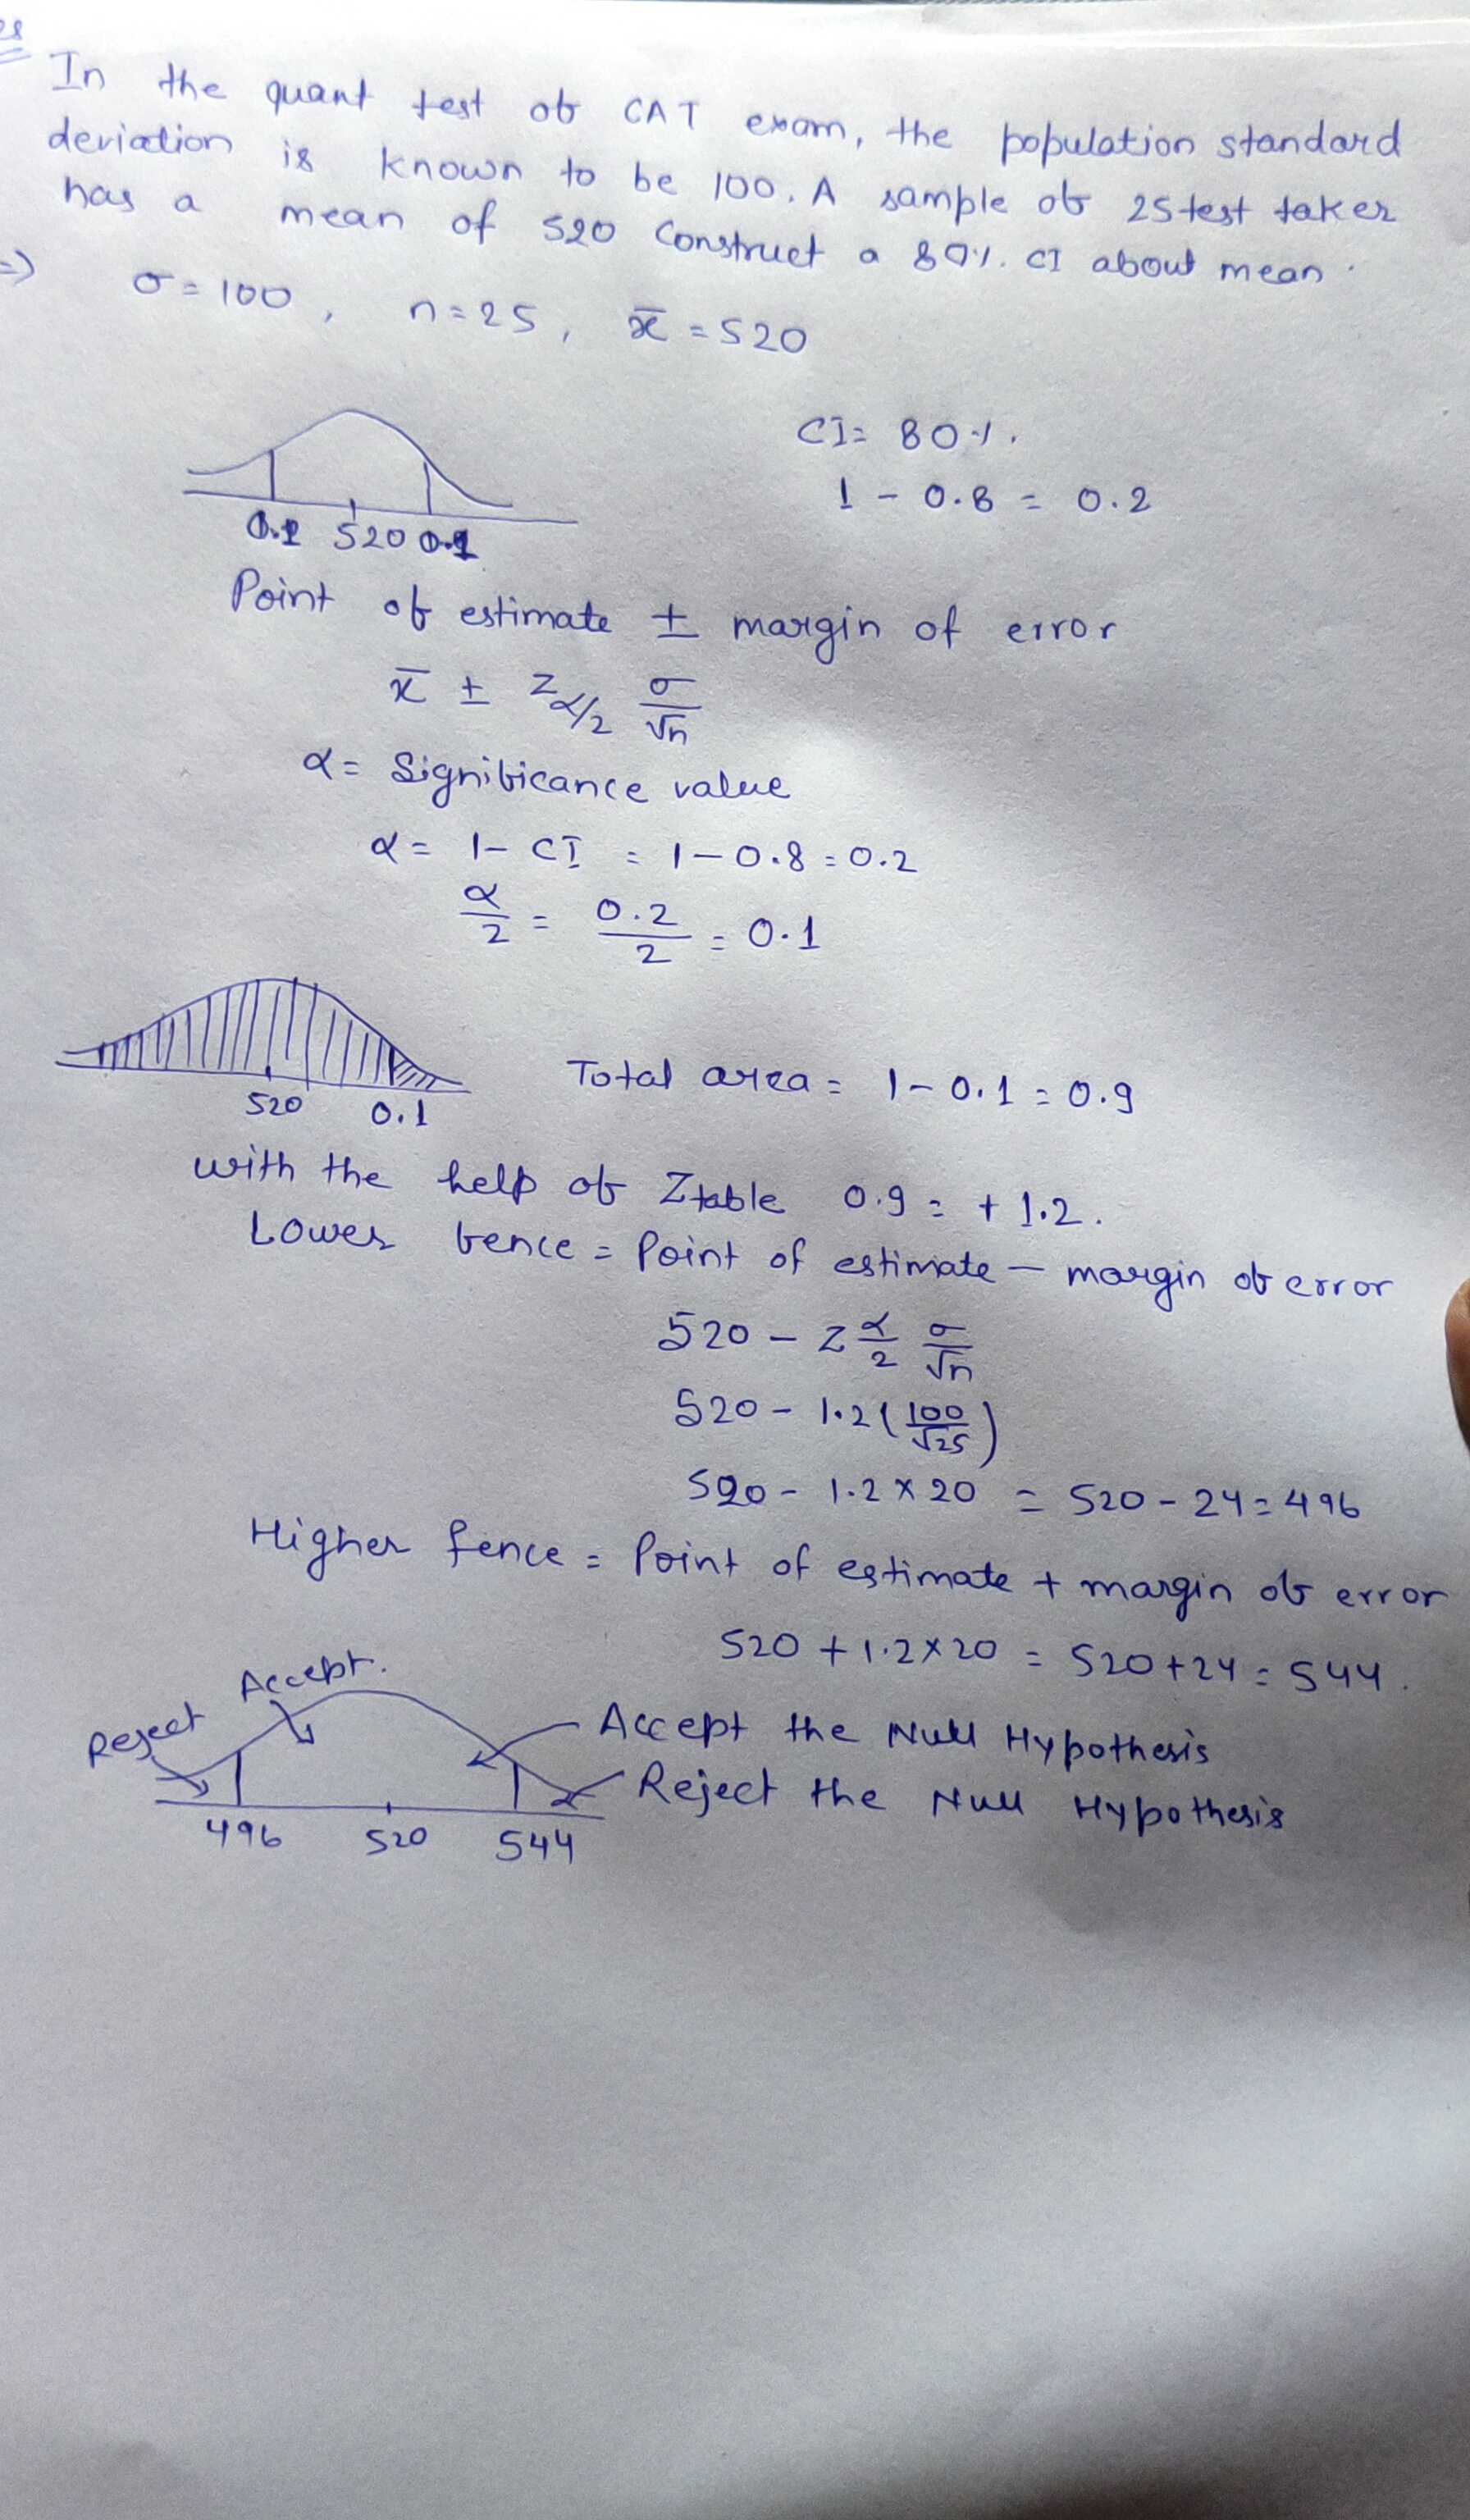 In the quant test of CAT exam, the population standard
deviation is known to be 100. A sample of 25 test taker
has a mean of 520 Construct a 80%. CI about mean.
=> σ = 100, n = 25, x̄ = 520
CI = 80%.
1 - 0.8 = 0.2
520 0.1
Point of estimate ± margin of error
x̄ ± Z α/2 σ/√n
α = Significance value
α = 1 - CI = 1 - 0.8 = 0.2
α/2 = 0.2/2 = 0.1
520 0.1
Total area = 1 - 0.1 = 0.9
with the help of Z table 0.9 = + 1.2.
Lower fence = Point of estimate - margin of error
520 - Z α/2 σ/√n
520 - 1.2 (100/√25)
520 - 1.2 × 20 = 520 - 24 = 496
Higher fence = Point of estimate + margin of error
520 + 1.2 × 20 = 520 + 24 = 544.
Reject Accept.
Accept the Null Hypothesis
Reject the Null Hypothesis
496 520 544